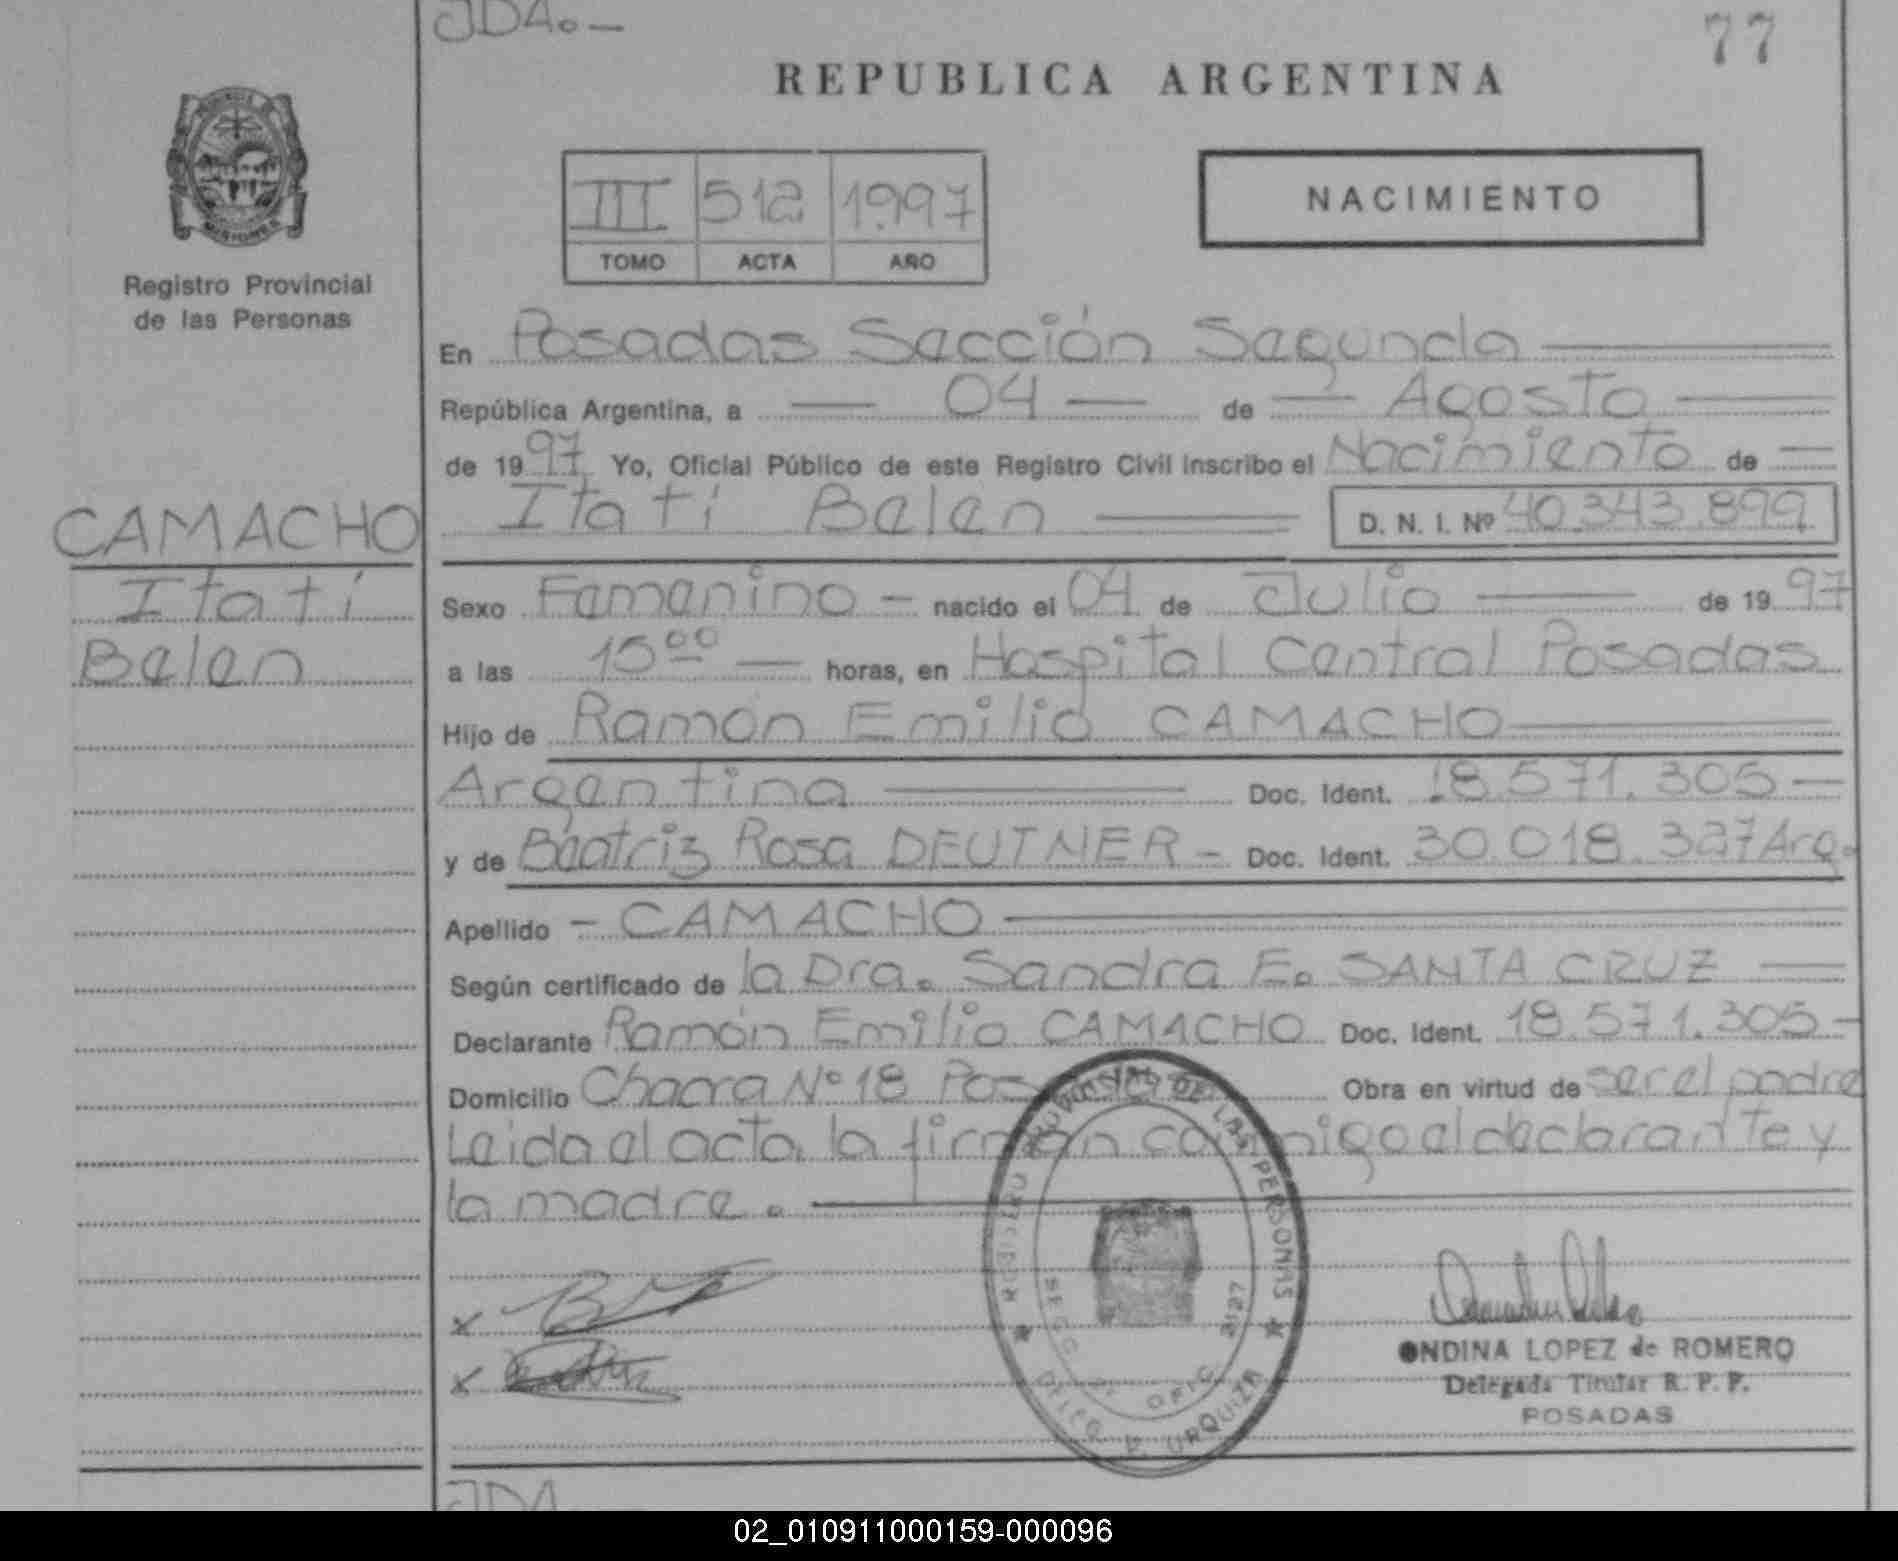 JDA.—
77
REPUBLICA ARGENTINA
MISIONES
Registro Provincial
de las Personas
III 512 1.997
TOMO ACTA AÑO
NACIMIENTO
En Posadas Sección Segunda
República Argentina, a — 04 — de — Agosto
de 1997 Yo, Oficial Público de este Registro Civil inscribo el Nacimiento de —
CAMACHO
Itatí
Belen
Itatí Belen D. N. I. Nº 40.343.899
Sexo Femenino — nacido el 04 de Julio — de 1997
a las 15⁰⁰ — horas, en Hospital Central Posadas
Hijo de Ramón Emilio CAMACHO
Argentina — Doc. Ident. 18.571.305 —
y de Beatriz Rosa DEUTNER — Doc. Ident. 30.018.327 Arg.
Apellido — CAMACHO
Según certificado de la Dra. Sandra E. SANTA CRUZ —
Declarante Ramón Emilio CAMACHO Doc. Ident. 18.571.305 —
Domicilio Chacra Nº 18 Posadas Obra en virtud de ser el padre
Leida el acta, la firman conmigo el declarante y
la madre. —
x
x
REGISTRO PROVINCIAL DE LAS PERSONAS
SECC. 2ª OFIC.
URQUIZA
ONDINA LOPEZ de ROMERO
Delegada Titular R. P. P.
POSADAS
JDA. —
02_010911000159-000096